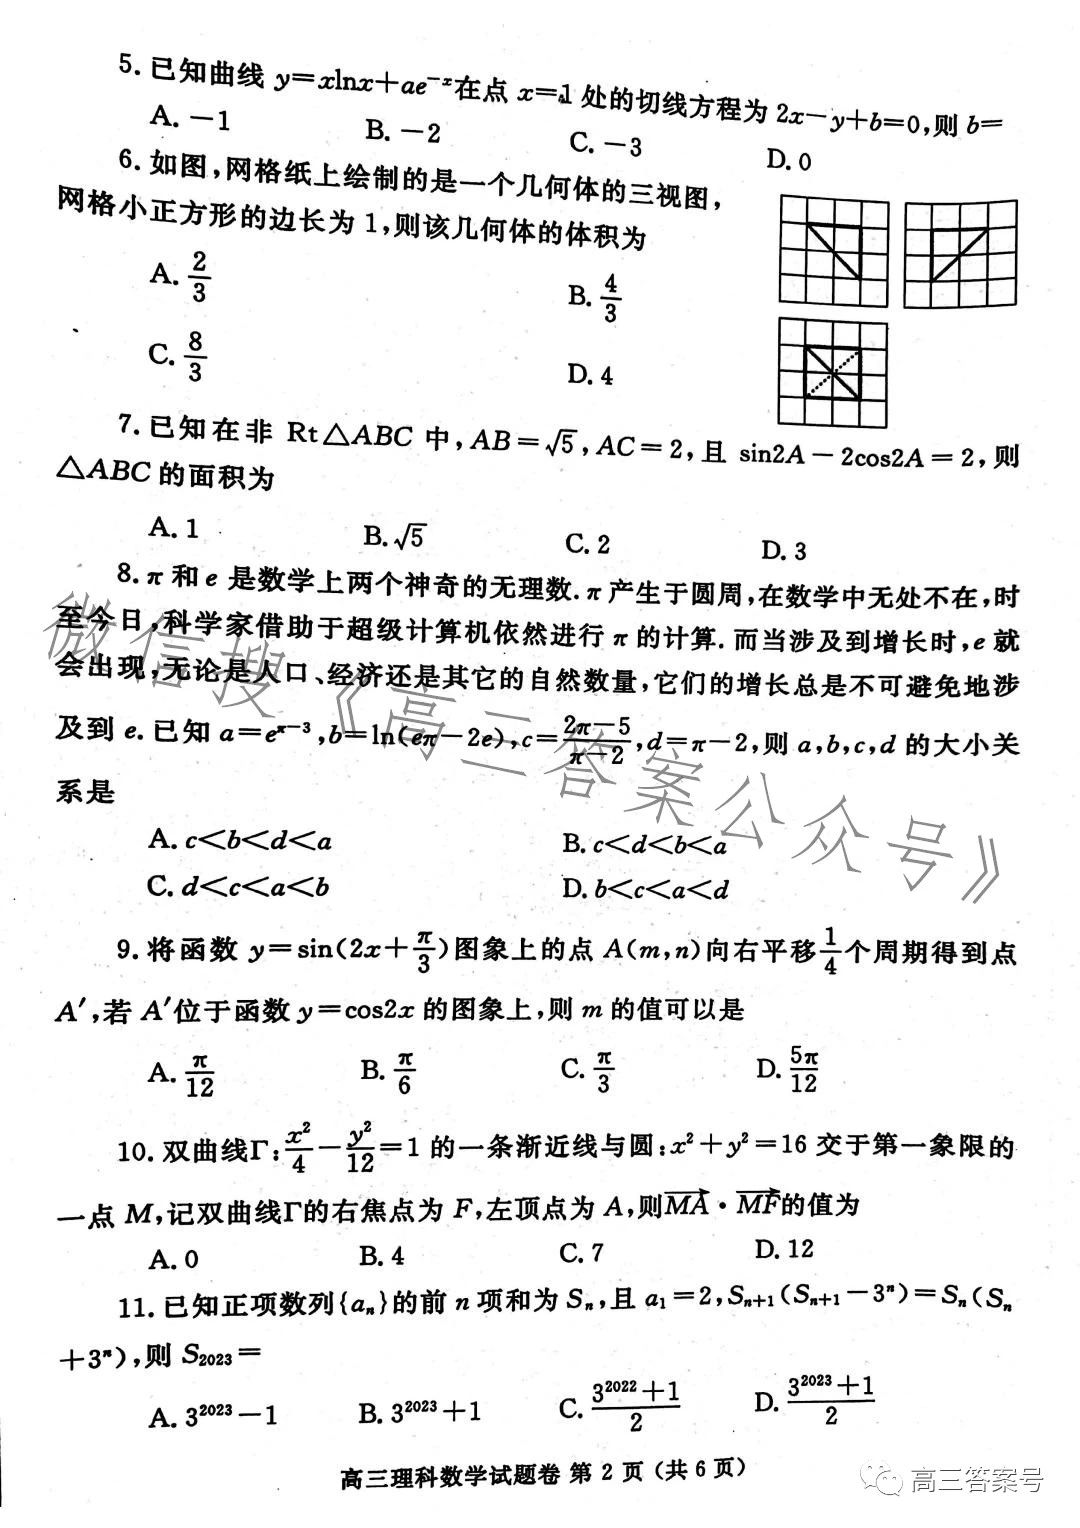 5. 已知曲线 y=xlnx+ae⁻ˣ在点 x=1 处的切线方程为 2x-y+b=0,则 b=
A. -1 B. -2 C. -3 D. 0
6. 如图,网格纸上绘制的是一个几何体的三视图,
网格小正方形的边长为 1,则该几何体的体积为
A. 2/3 B. 4/3
C. 8/3 D. 4
7. 已知在非 Rt△ABC 中,AB=√5,AC=2,且 sin2A-2cos2A=2,则
△ABC 的面积为
A. 1 B. √5 C. 2 D. 3
8. π 和 e 是数学上两个神奇的无理数. π 产生于圆周,在数学中无处不在,时
至今日,科学家借助于超级计算机依然进行 π 的计算. 而当涉及到增长时,e 就
会出现,无论是人口、经济还是其它的自然数量,它们的增长总是不可避免地涉
及到 e. 已知 a=e^(π-3),b=ln(eπ-2e),c=(2π-5)/(π-2),d=π-2,则 a,b,c,d 的大小关
系是
A. c<b<d<a B. c<d<b<a
C. d<c<a<b D. b<c<a<d
9. 将函数 y=sin(2x+π/3)图象上的点 A(m,n)向右平移1/4个周期得到点
A′,若 A′位于函数 y=cos2x 的图象上,则 m 的值可以是
A. π/12 B. π/6 C. π/3 D. 5π/12
10. 双曲线Γ:x²/4-y²/12=1 的一条渐近线与圆:x²+y²=16 交于第一象限的
一点 M,记双曲线Γ的右焦点为 F,左顶点为 A,则MA→·MF→的值为
A. 0 B. 4 C. 7 D. 12
11. 已知正项数列{aₙ}的前 n 项和为 Sₙ,且 a₁=2,Sₙ₊₁(Sₙ₊₁-3ⁿ)=Sₙ(Sₙ
+3ⁿ),则 S₂₀₂₃=
A. 3²⁰²³-1 B. 3²⁰²³+1 C. (3²⁰²²+1)/2 D. (3²⁰²³+1)/2
高三理科数学试题卷 第 2 页 (共 6 页)
微信搜《高三答案公众号》
高三答案号